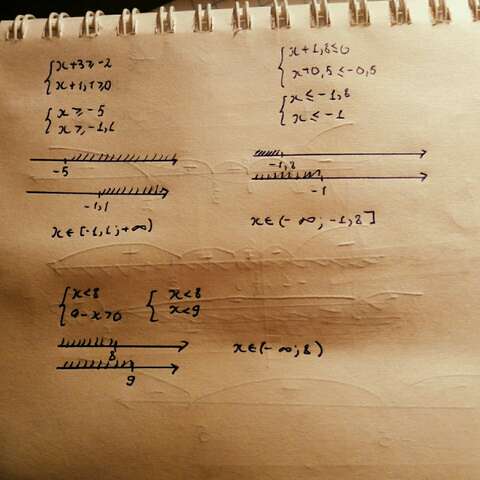 x+3≥-2
x+1,1≥0
x≥-5
x≥-1,1
-5
-1,1
x∈[-1,1;+∞)
x+1,8≤0
x+0,5≤-0,5
x≤-1,8
x≤-1
-1,8
-1
x∈(-∞;-1,8]
x<8
9-x>0
x<8
x<9
8
9
x∈(-∞;8)